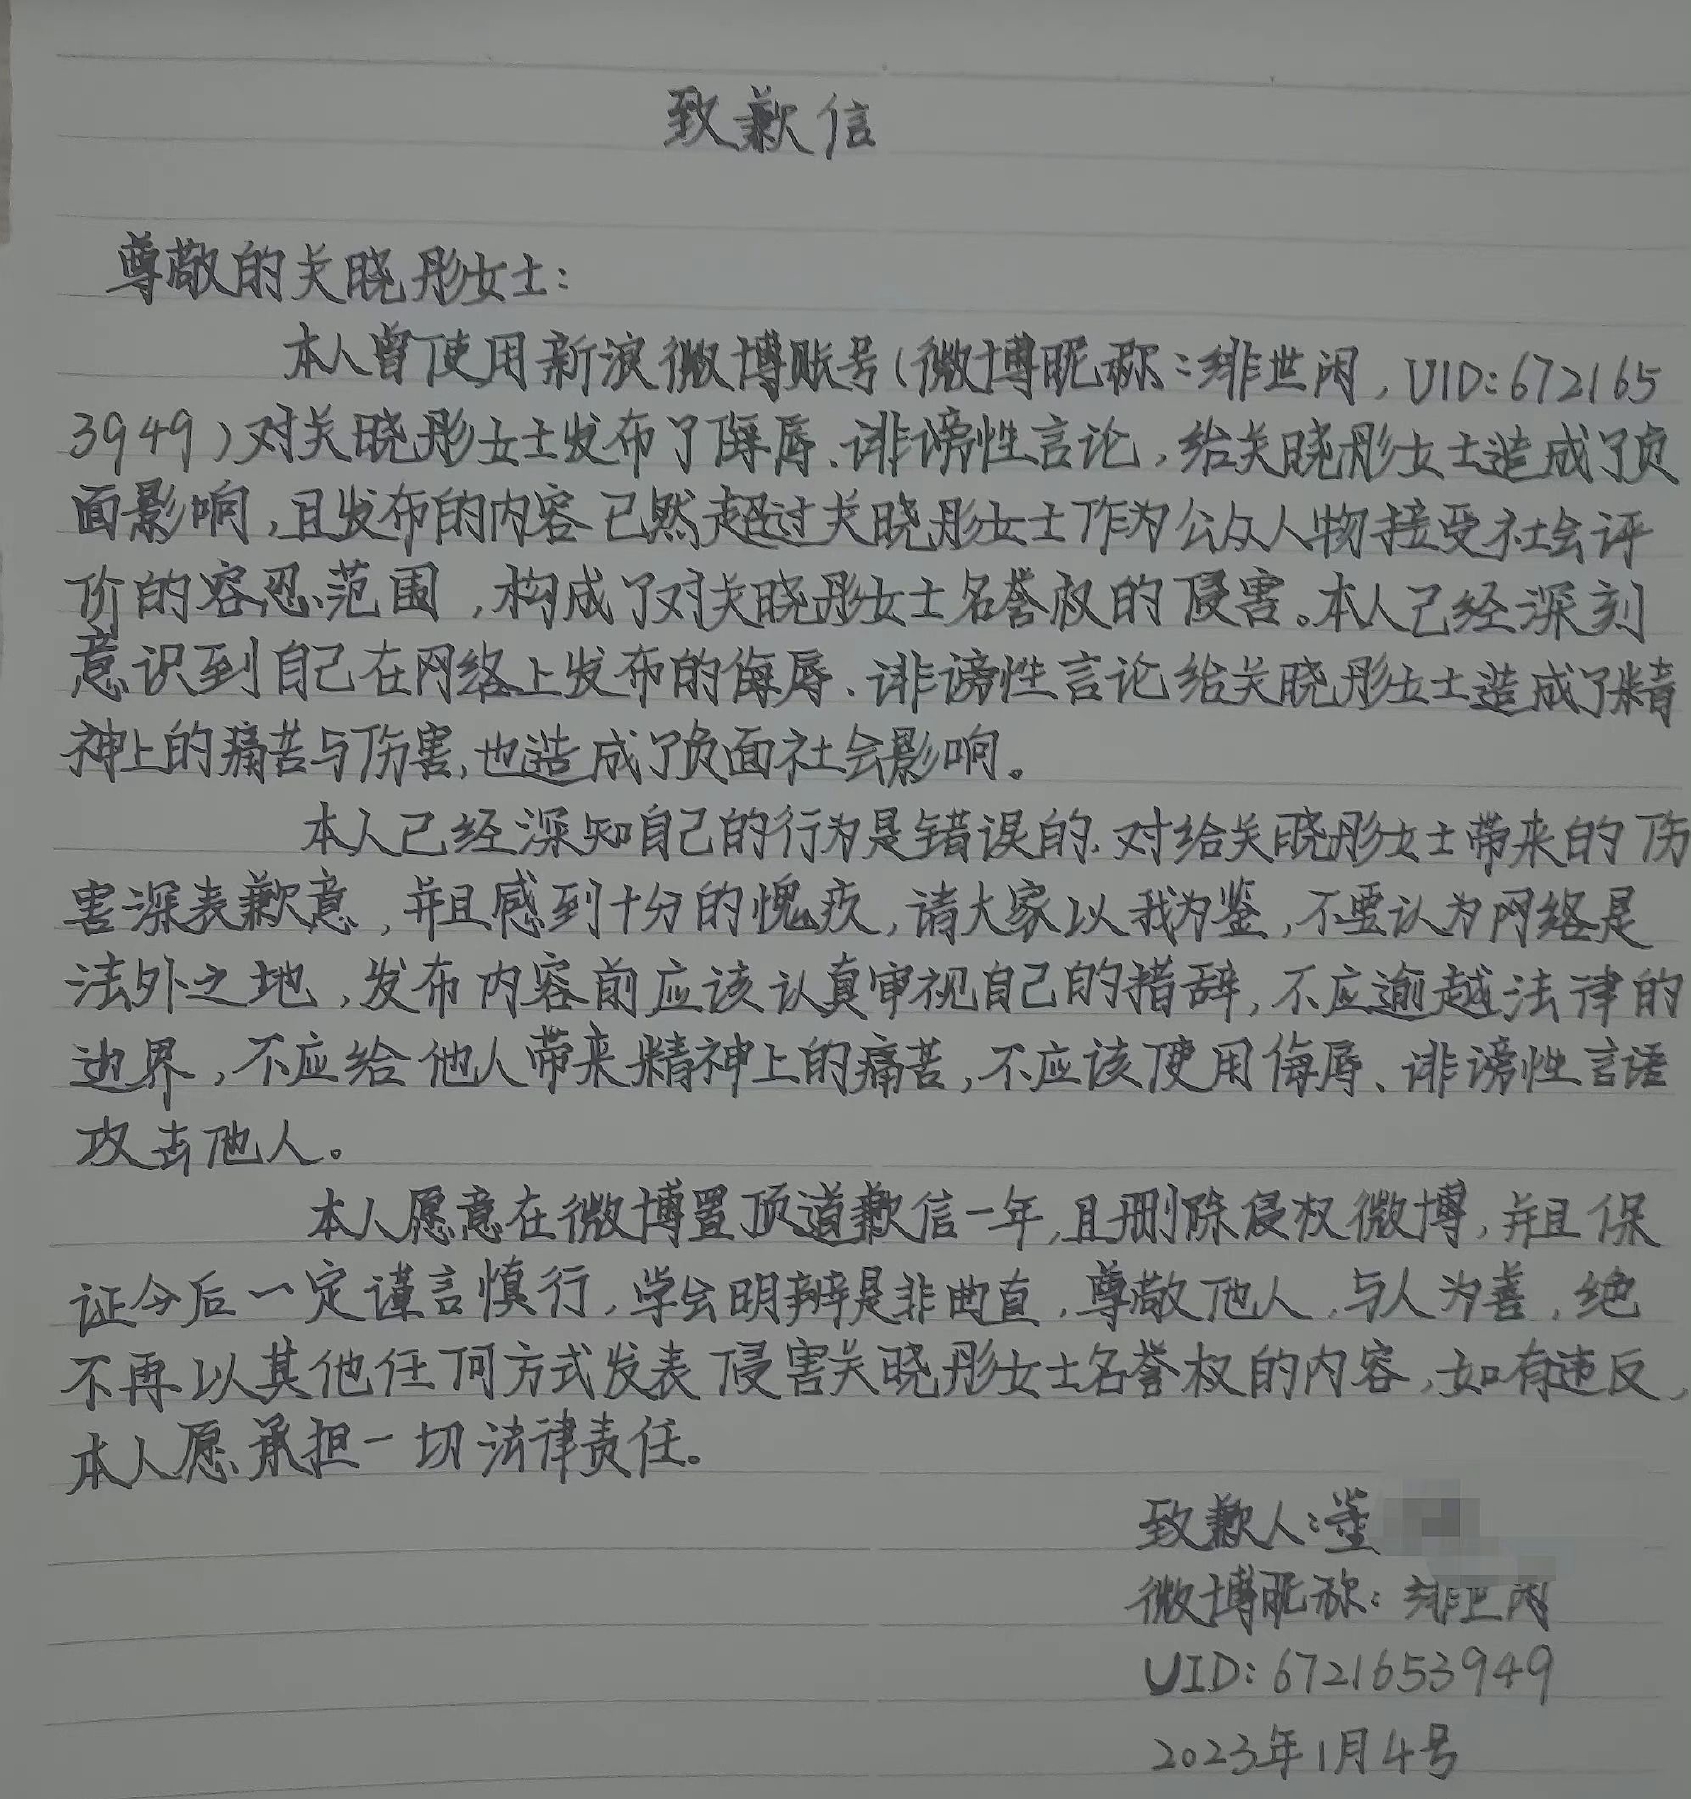 致歉信
尊敬的关晓彤女士：
本人曾使用新浪微博账号(微博昵称：绯世闲，UID:672165
3949)对关晓彤女士发布了侮辱、诽谤性言论，给关晓彤女士造成了负
面影响，且发布的内容已然超过关晓彤女士作为公众人物接受社会评
价的容忍范围，构成了对关晓彤女士名誉权的侵害。本人已经深刻
意识到自己在网络上发布的侮辱、诽谤性言论给关晓彤女士造成了精
神上的痛苦与伤害，也造成了负面社会影响。
本人已经深知自己的行为是错误的，对给关晓彤女士带来的伤
害深表歉意，并且感到十分的愧疚，请大家以我为鉴，不要认为网络是
法外之地，发布内容前应该认真审视自己的措辞，不应逾越法律的
边界，不应给他人带来精神上的痛苦，不应该使用侮辱、诽谤性言语
攻击他人。
本人愿意在微博置顶道歉信一年，且删除侵权微博，并且保
证今后一定谨言慎行，学会明辨是非曲直，尊敬他人，与人为善，绝
不再以其他任何方式发表侵害关晓彤女士名誉权的内容，如有违反，
本人愿承担一切法律责任。
致歉人：董
微博昵称：绯世闲
UID:6721653949
2023年1月4号